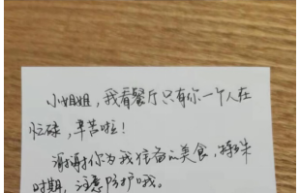 小姐姐，我看餐厅只有你一个人在
忙碌，辛苦啦！
谢谢你为我准备的美食，特殊
时期，注意防护哦。